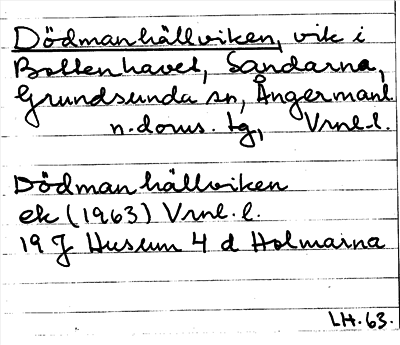 Dödmanhällviken, vik i
Bottenhavet, Sandarna,
Grundsunda sn, Ångermanl.
n. doms. tg, Vrnl. l.
Dödmanhällviken
ek (1963) Vrnl. l.
19 J Husum 4 d Holmarna
LH. 63.